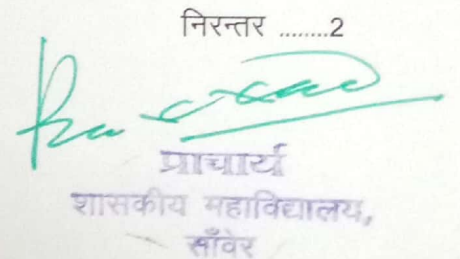 निरन्तर ........2
प्राचार्य
शासकीय महाविद्यालय,
साँवेर